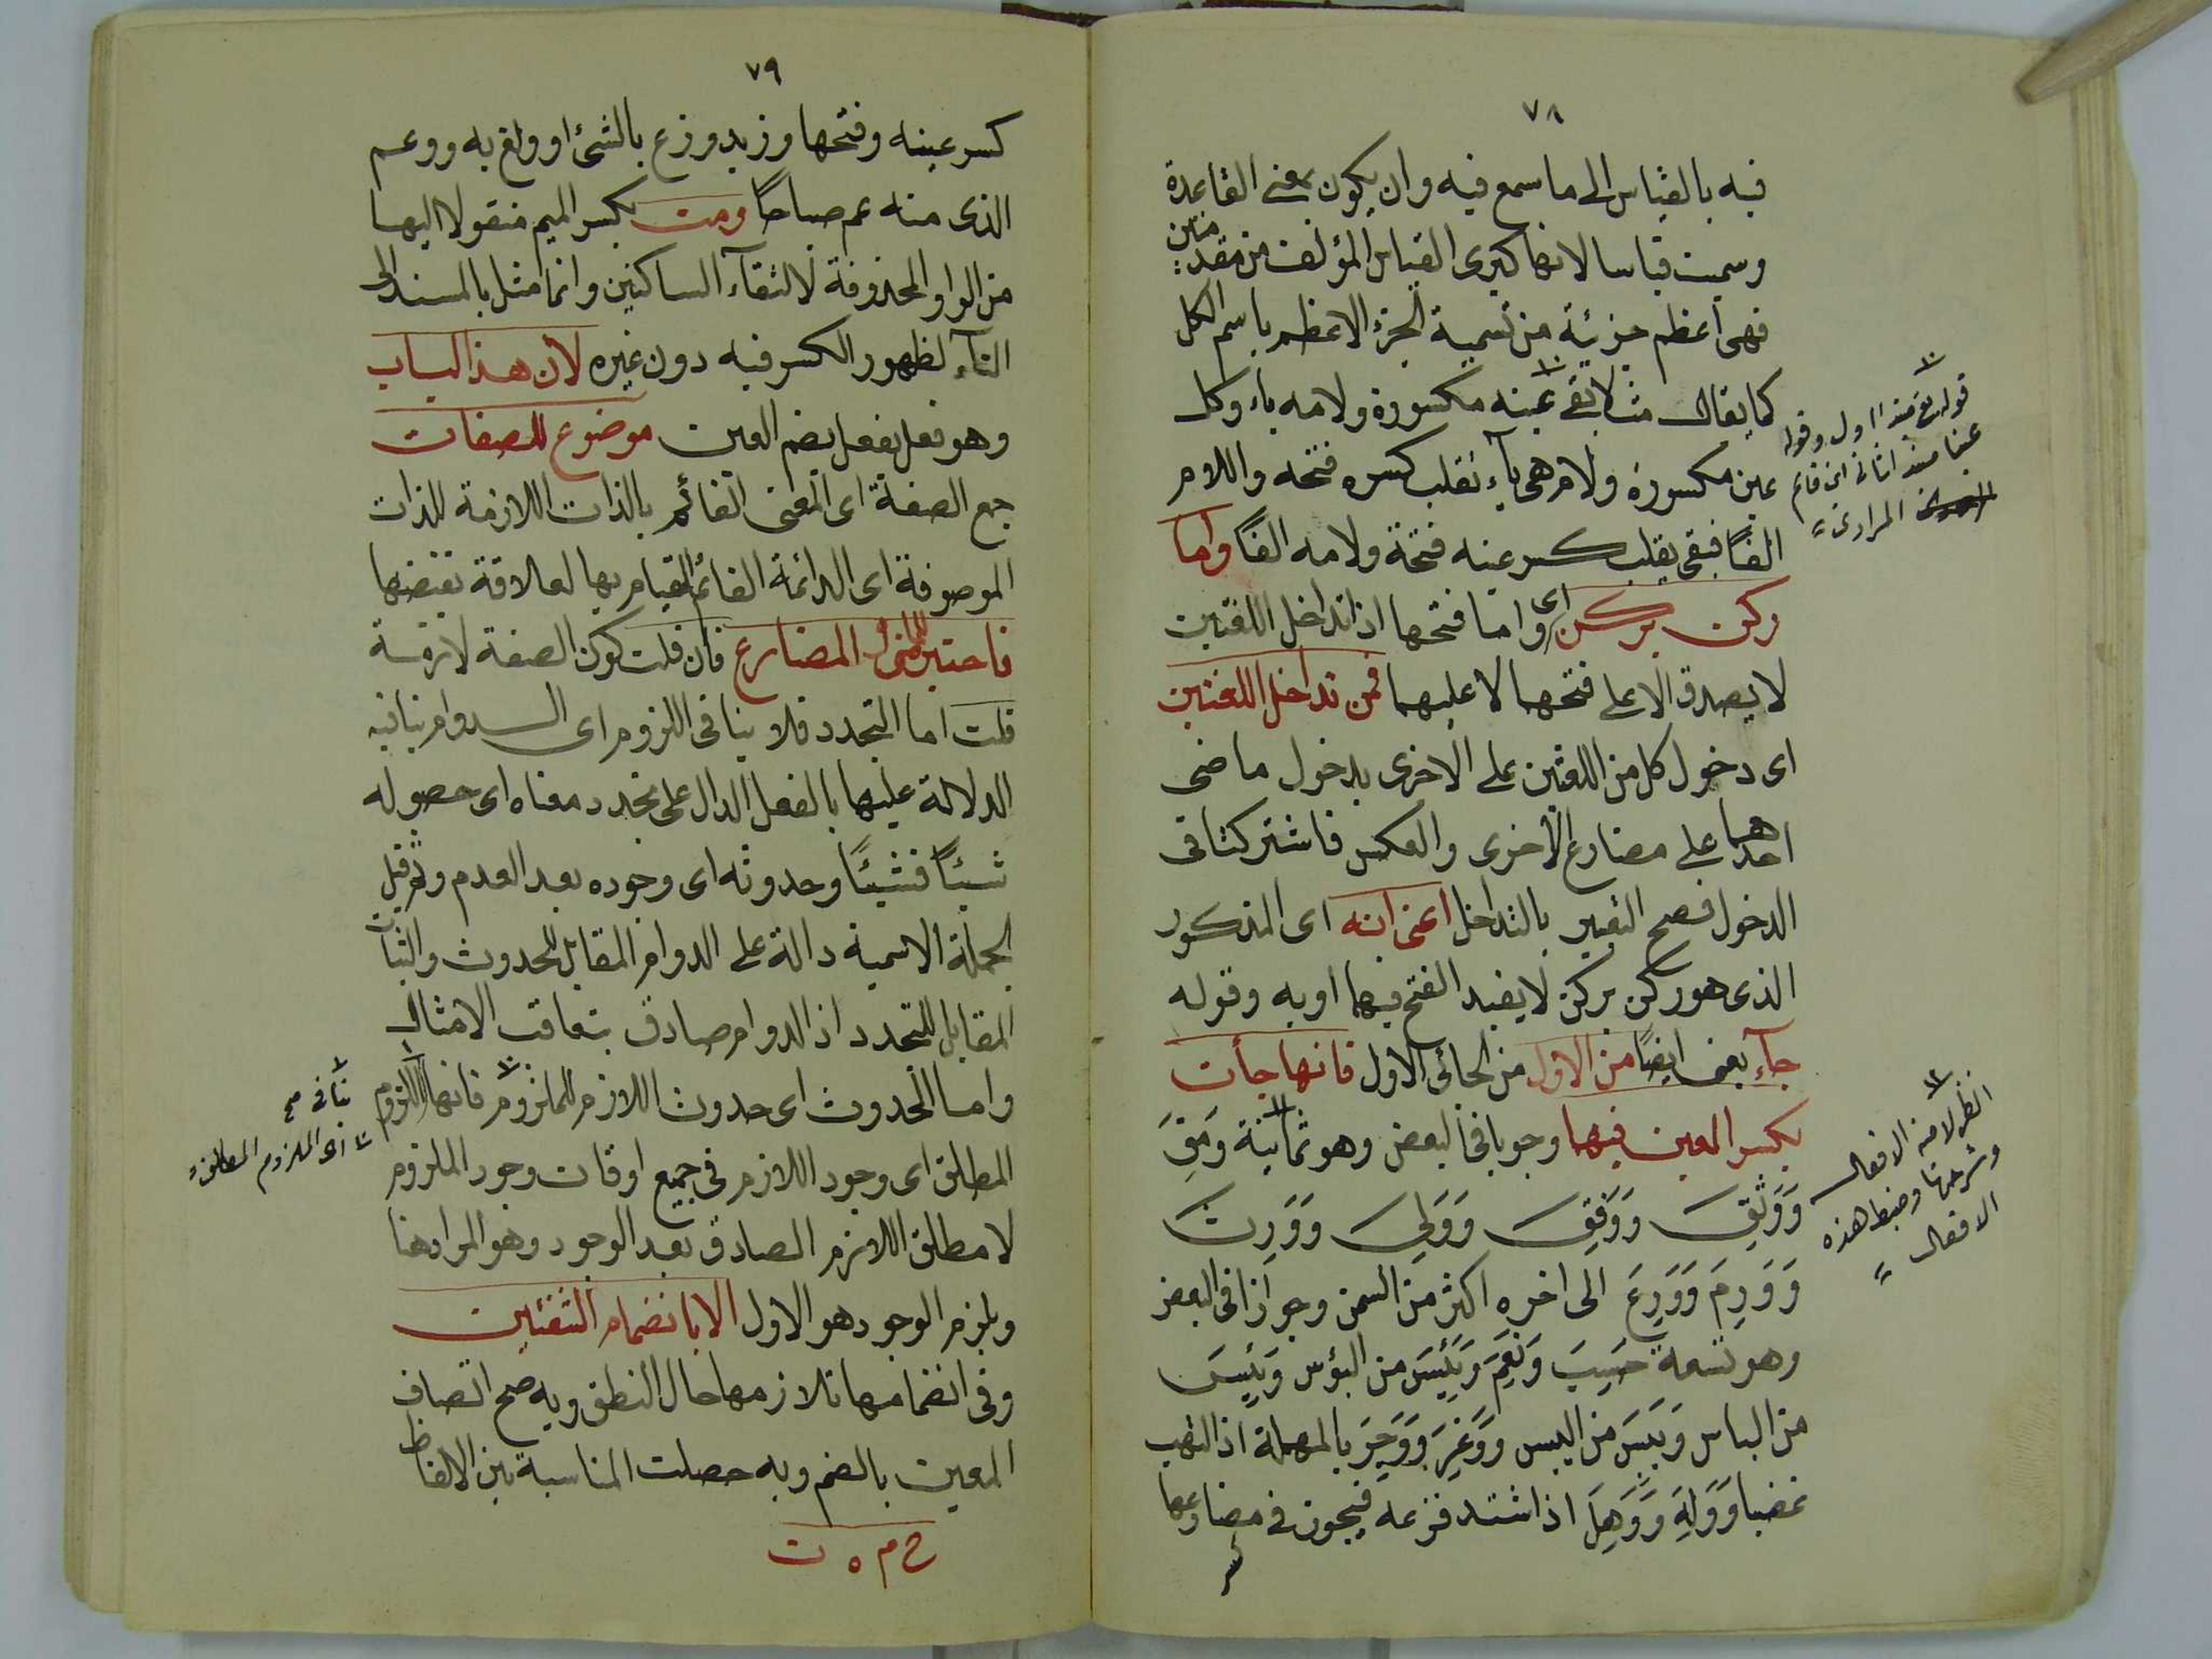 ٧٨
فيه بالقياس الى ما سمع فيه وان يكون بمعنى القاعدة
وسميت قياسا لانها كبرى القياس المؤلف من مقدمتين
فهى اعظم جزئية من تسمية الجزء الاعظم باسم الكل
كما يقال مثلا بقى عينه مكسورة ولامه ياء وكل
عين مكسورة ولام هى ياء تقلب كسره فتحه واللام
الفًا فبقى يقلب كسر عينه فتحة ولامه الفًا واما
ركن يركن اى واما فتحها اذا تداخل اللغتين
لا يصدق الا على فتحهما لا عليهما فمن تداخل اللغتين
اى دخول كل من اللغتين على الاخرى بدخول ماضى
احدهما على مضارع الاخرى والعكس فاشتركتا فى
الدخول فصح التعبير بالتداخل اعنى انه اى المذكور
الذى هو ركن يركن لا يفيد الفتح فيهما او به وقوله
جآء يعنى ايضًا من الاول من الجائى الاول فانها جأت
بكسر العين فيهما وجوبا فى البعض وهو ثمانية وَمِقَ
وَوَثِقَ وَوَفِقَ وَوَلِىَ وَوَرِثَ
وَوَرِمَ وَوَرِعَ الى اخره اكثر من السمن وجوازا فى البعض
وهو تسعة حَسِبَ وَنَعِمَ وَبَئِسَ من البؤس وَيَئِسَ
من الباس وَيَبِسَ من اليبس وَوَغِرَ وَوَحِرَ بالمهملة اذا التهب
غضبا وَوَلِهَ وَوَهِلَ اذا اشتد فزعه فيجوز فى مضارعها
انظر لامية الافعال
وشرحها وضبط هذه
الافعال
٧٩
كسر عينه وفتحها وزيد وزع بالشئ او ولغ به ووعم
الذى منه عم صباحًا ومت بكسر الميم منقولا اليها
من الواو المحذوفة لالتقآء الساكنين وانما مثل بالمسند الى
التآء لظهور الكسر فيه دون غيره لان هذا الباب
وهو فعل يفعل بضم العين موضوع للصفات
جمع الصفة اى المعنى القائم بالذات اللازمة للذات
الموصوفة اى الدائمة القائم القيام بها لعلاقة تقتضيها
فاختير للماضى والمضارع فان قلت كون الصفة لازمة
قلت اما التجدد فلا ينافى اللزوم اى الدوام ينافيه
الدلالة عليها بالفعل الدال على تجدد معناه اى حصوله
شيئًا فشيئًا وحدوثه اى وجوده بعد العدم ولم قيل
الجملة الاسمية دالة على الدوام المقابل للحدوث والثبات
المقابل للتجدد اذ الدوام صادق بتعاقب الامثال
واما الحدوث اى حدوث اللازم للملزوم فانها اللزوم
المطلق اى وجود اللازم فى جميع اوقات وجود الملزوم
لا مطلق اللازم الصادق بعد الوجود وهو المراد هنا
ويلزم الوجود هو الاول الا بانضمام الشفتين
وفى انضمامها تلازمها حال النطق وبه صح اتصاف
العين بالضم وبه حصلت المناسبة بين الالفاظ
ينافى صح
اى الملزوم المطلق